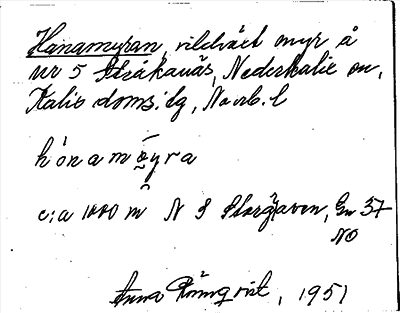 Hanamyran, vildväxt myr å
nr 5 Stråkanäs, Nederkalix sn,
Kalix doms:lg, Norrb. l
hónamyra
c:a 1000 m N S Storåjaven, Gr 37
NO
Anna Rönnqvist, 1951